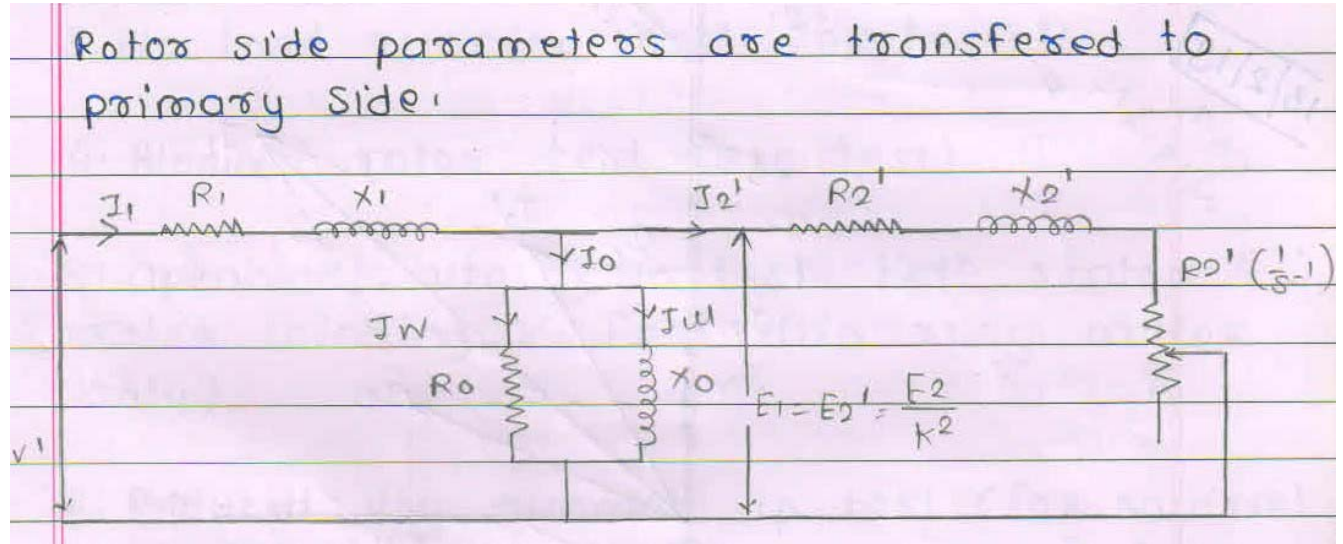 Rotor side parameters are transfered to
primary side.
I1 R1 X1 I2' R2' X2'
I0
R2' (1/s - 1)
Iw Iμ
R0 X0
E1 = E2' = E2/K2
V1